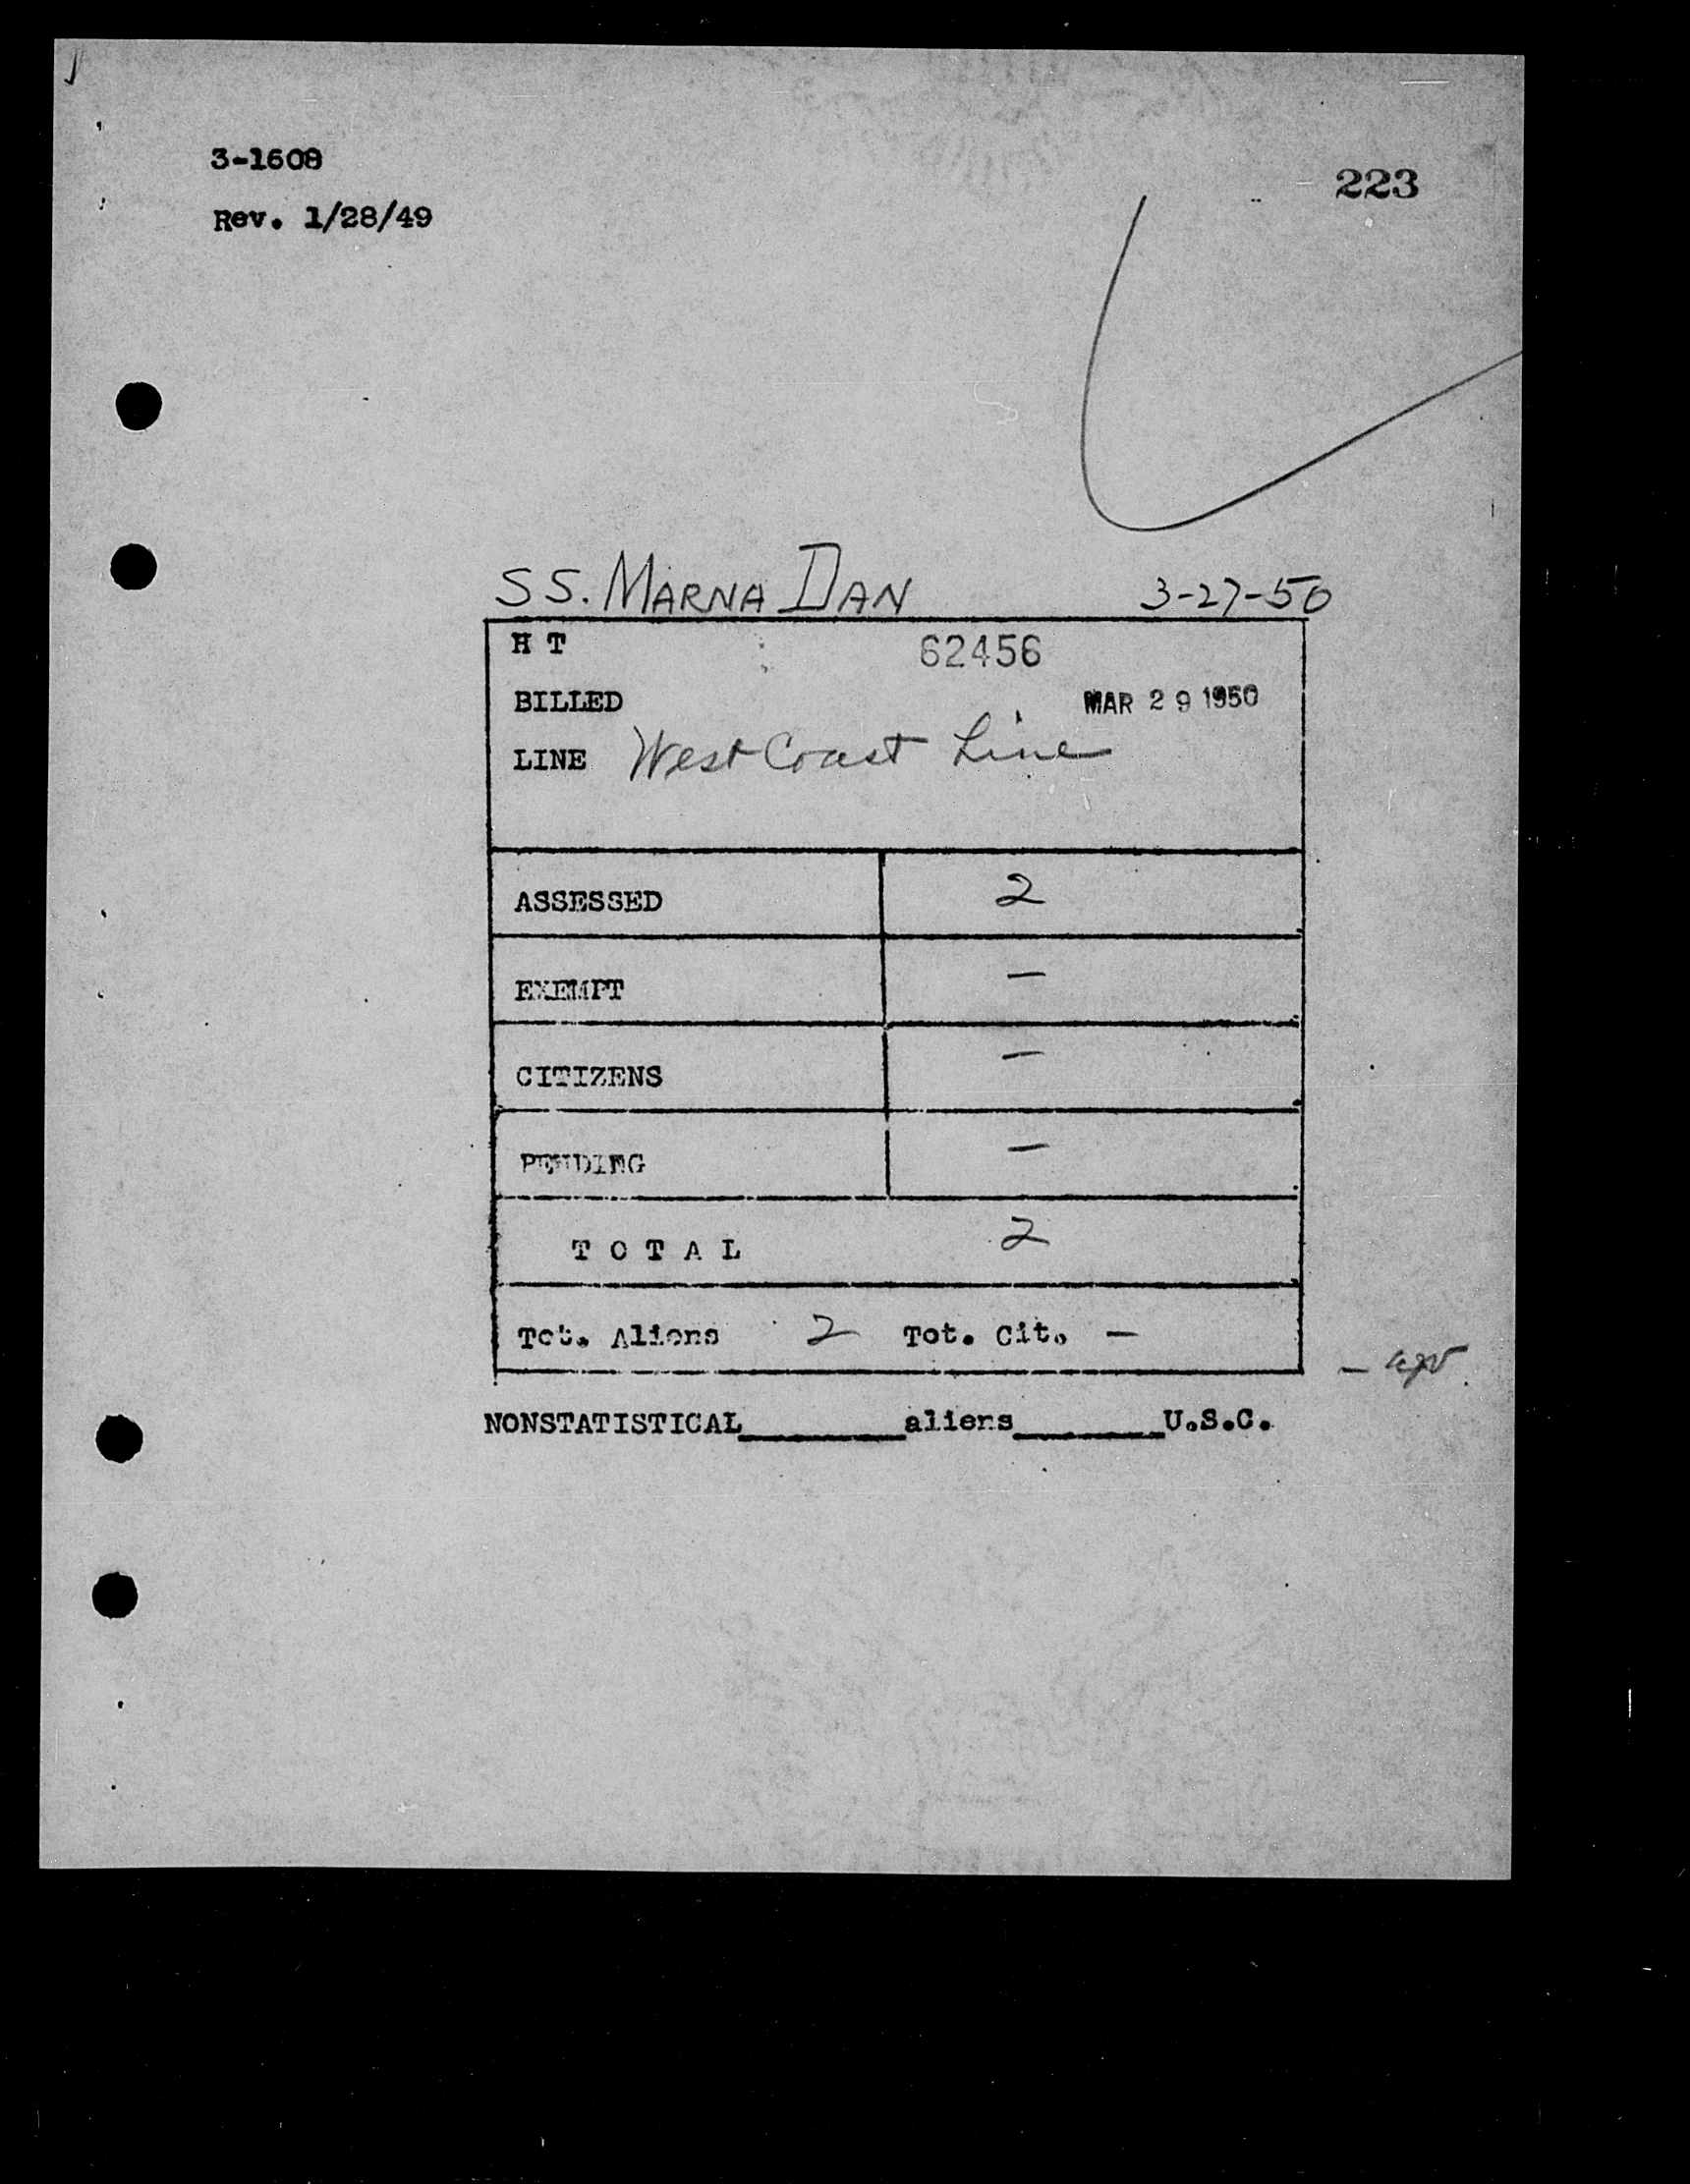 3-1608
223
Rev. 1/28/49
SS. MARNA DAN 3-27-50
H T 62456
BILLED MAR 29 1950
LINE West Coast Line
ASSESSED 2
EXEMPT —
CITIZENS —
PENDING —
T O T A L 2
Tot. Aliens 2 Tot. Cit. —
NONSTATISTICAL________aliens_______U.S.C.